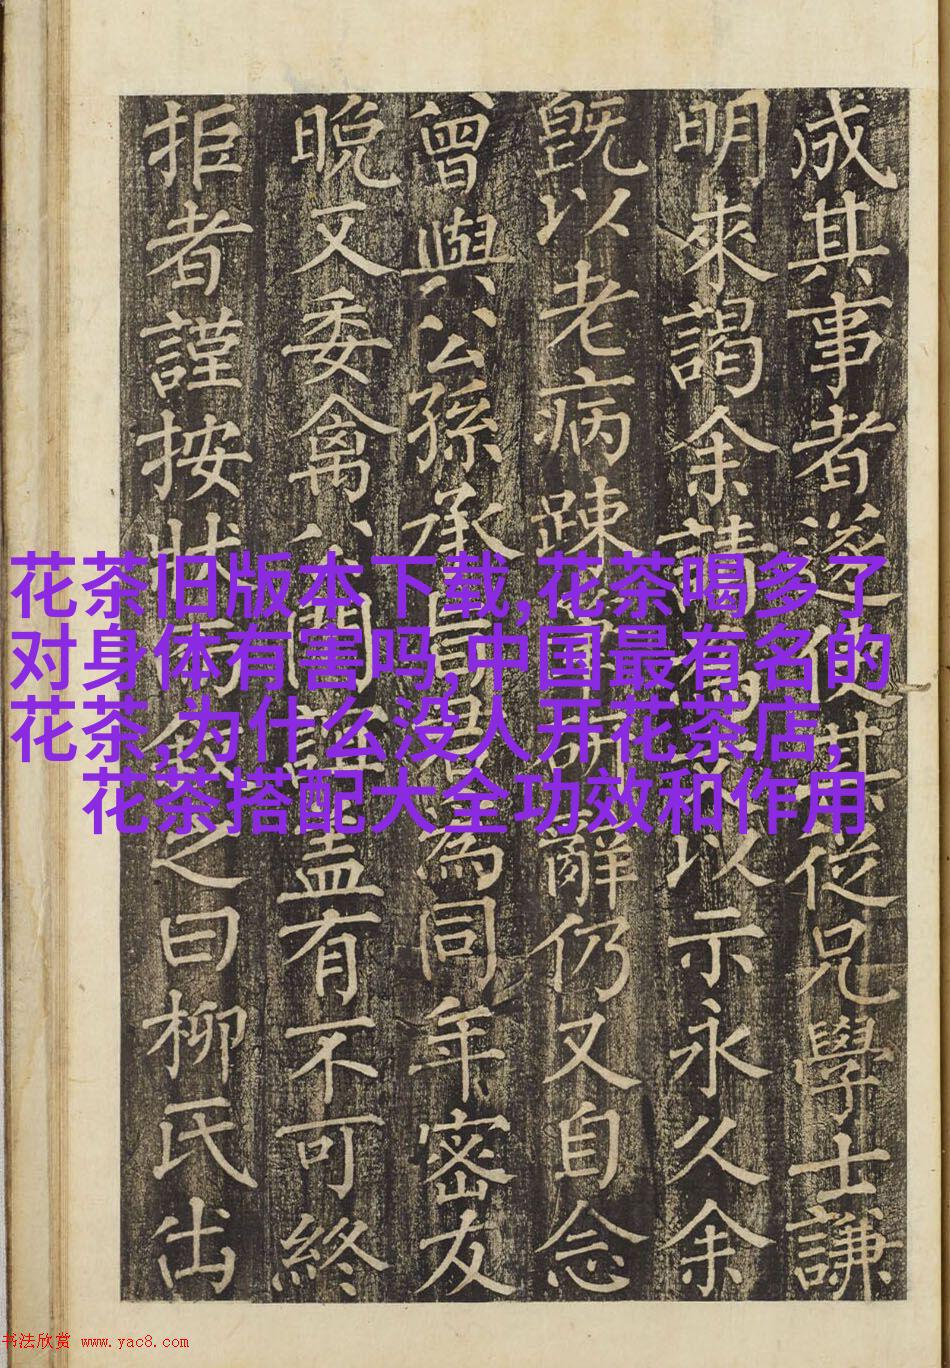 成其事者遂使其從兄學士謙
明來謁余請為以示永久余
既以老病踈辭仍又自念
曾與公孫承君為同年密友
晚又委禽公閨誼盖有不可終
拒者謹按狀之曰柳氏出
花茶旧版本下载,花茶喝多了
对身体有害吗,中国最有名的
花茶,为什么没人开花茶店，
花茶搭配大全功效和作用
书法欣赏 www.yac8.com